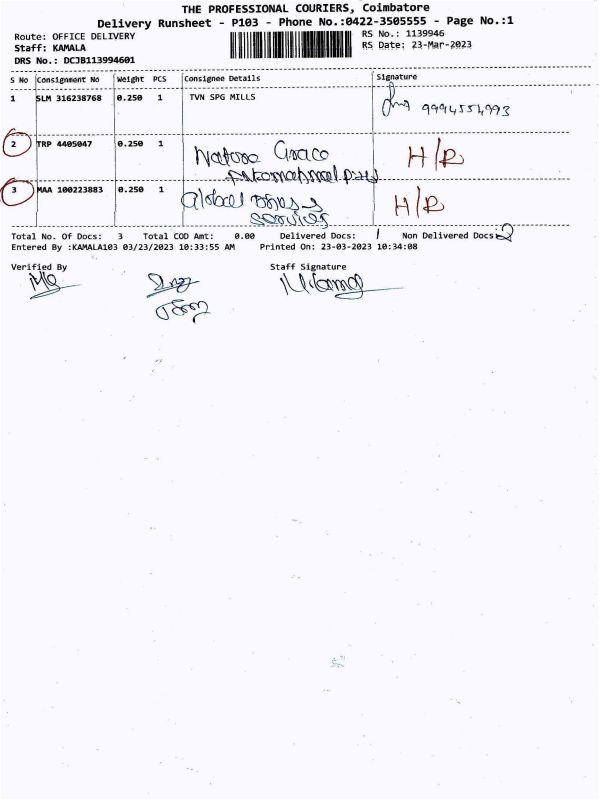 THE PROFESSIONAL COURIERS, Coimbatore
Delivery Runsheet - P103 - Phone No.:0422-3505555 - Page No.:1
Route: OFFICE DELIVERY
RS No.: 1139946
Staff: KAMALA
RS Date: 23-Mar-2023
DRS No.: DCJB113994601
S No Consignment No Weight PCS Consignee Details Signature
1 SLM 316238768 0.250 1 TVN SPG MILLS
2 TRP 4405047 0.250 1 H/R
3 MAA 100223883 0.250 1 Global H/R
services
Total No. Of Docs: 3 Total COD Amt: 0.00 Delivered Docs: 1 Non Delivered Docs: 2
Entered By :KAMALA103 03/23/2023 10:33:55 AM Printed On: 23-03-2023 10:34:08
Verified By Staff Signature